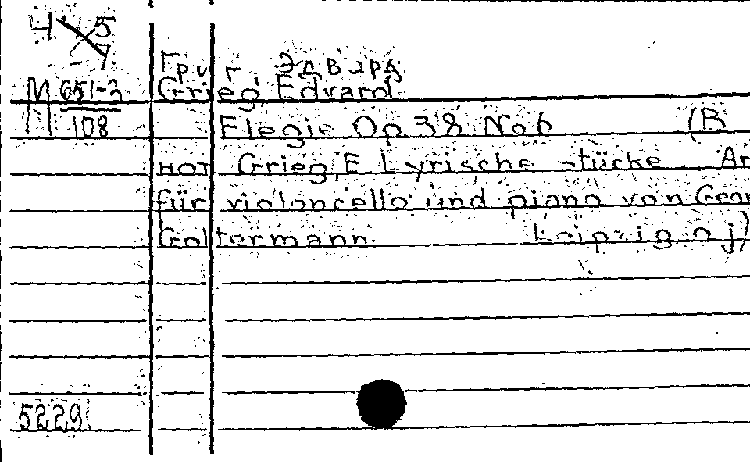 4 5
7
Григ Эдвард
М 651-3 Grieg, Edvard
108 Elegie Op 38 No 6 (В
нот Grieg, E Lyrische stücke Ar
für violoncello und piano von Geor
Goltermann Leipzig o j)
5229